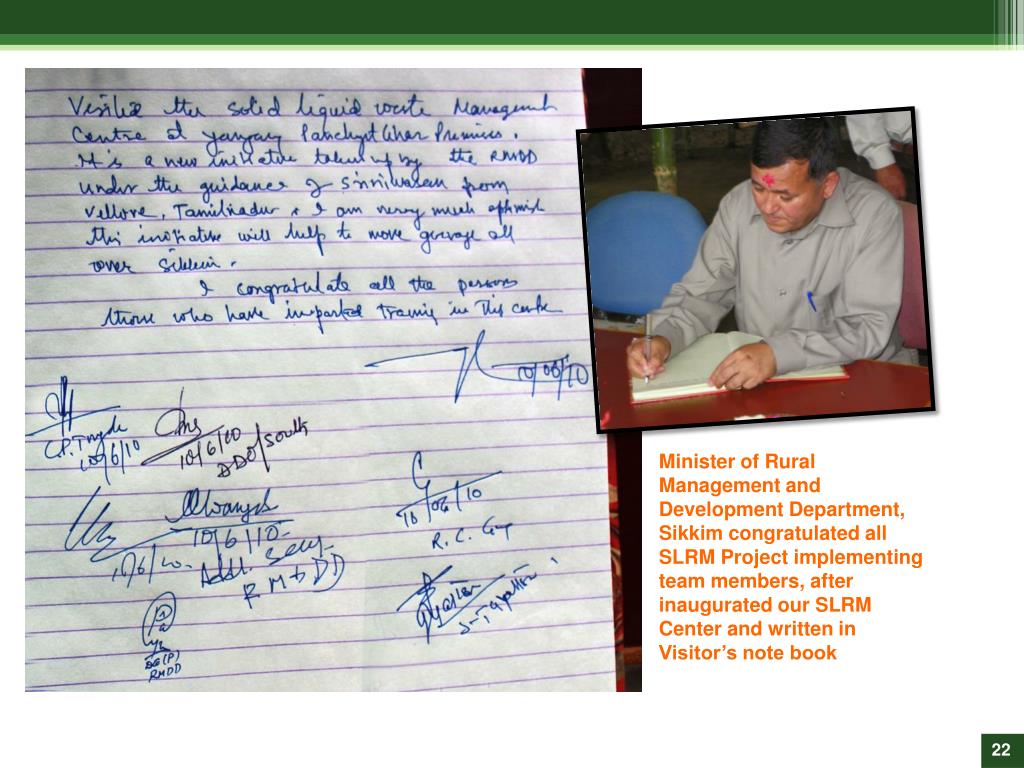 Visited the solid liquid waste Management
Centre at yangang Panchyat Ghar Premises.
It's a new initiative taken up by the RMDD
under the guidance of Srinivasan from
Vellore, Tamilnadu. I am very much optimist
this initiative will help to move garvage all
over Sikkim.
I congratulate all the persons
those who have imparted training in this centre
10/06/10
C.P.
10/6/10
10/6/10
DDO/South
10/6/10
10/6/10
Addl. Secy.
RM&DD
10/06/10
R.C.
RMDD
Minister of Rural
Management and
Development Department,
Sikkim congratulated all
SLRM Project implementing
team members, after
inaugurated our SLRM
Center and written in
Visitor's note book
22